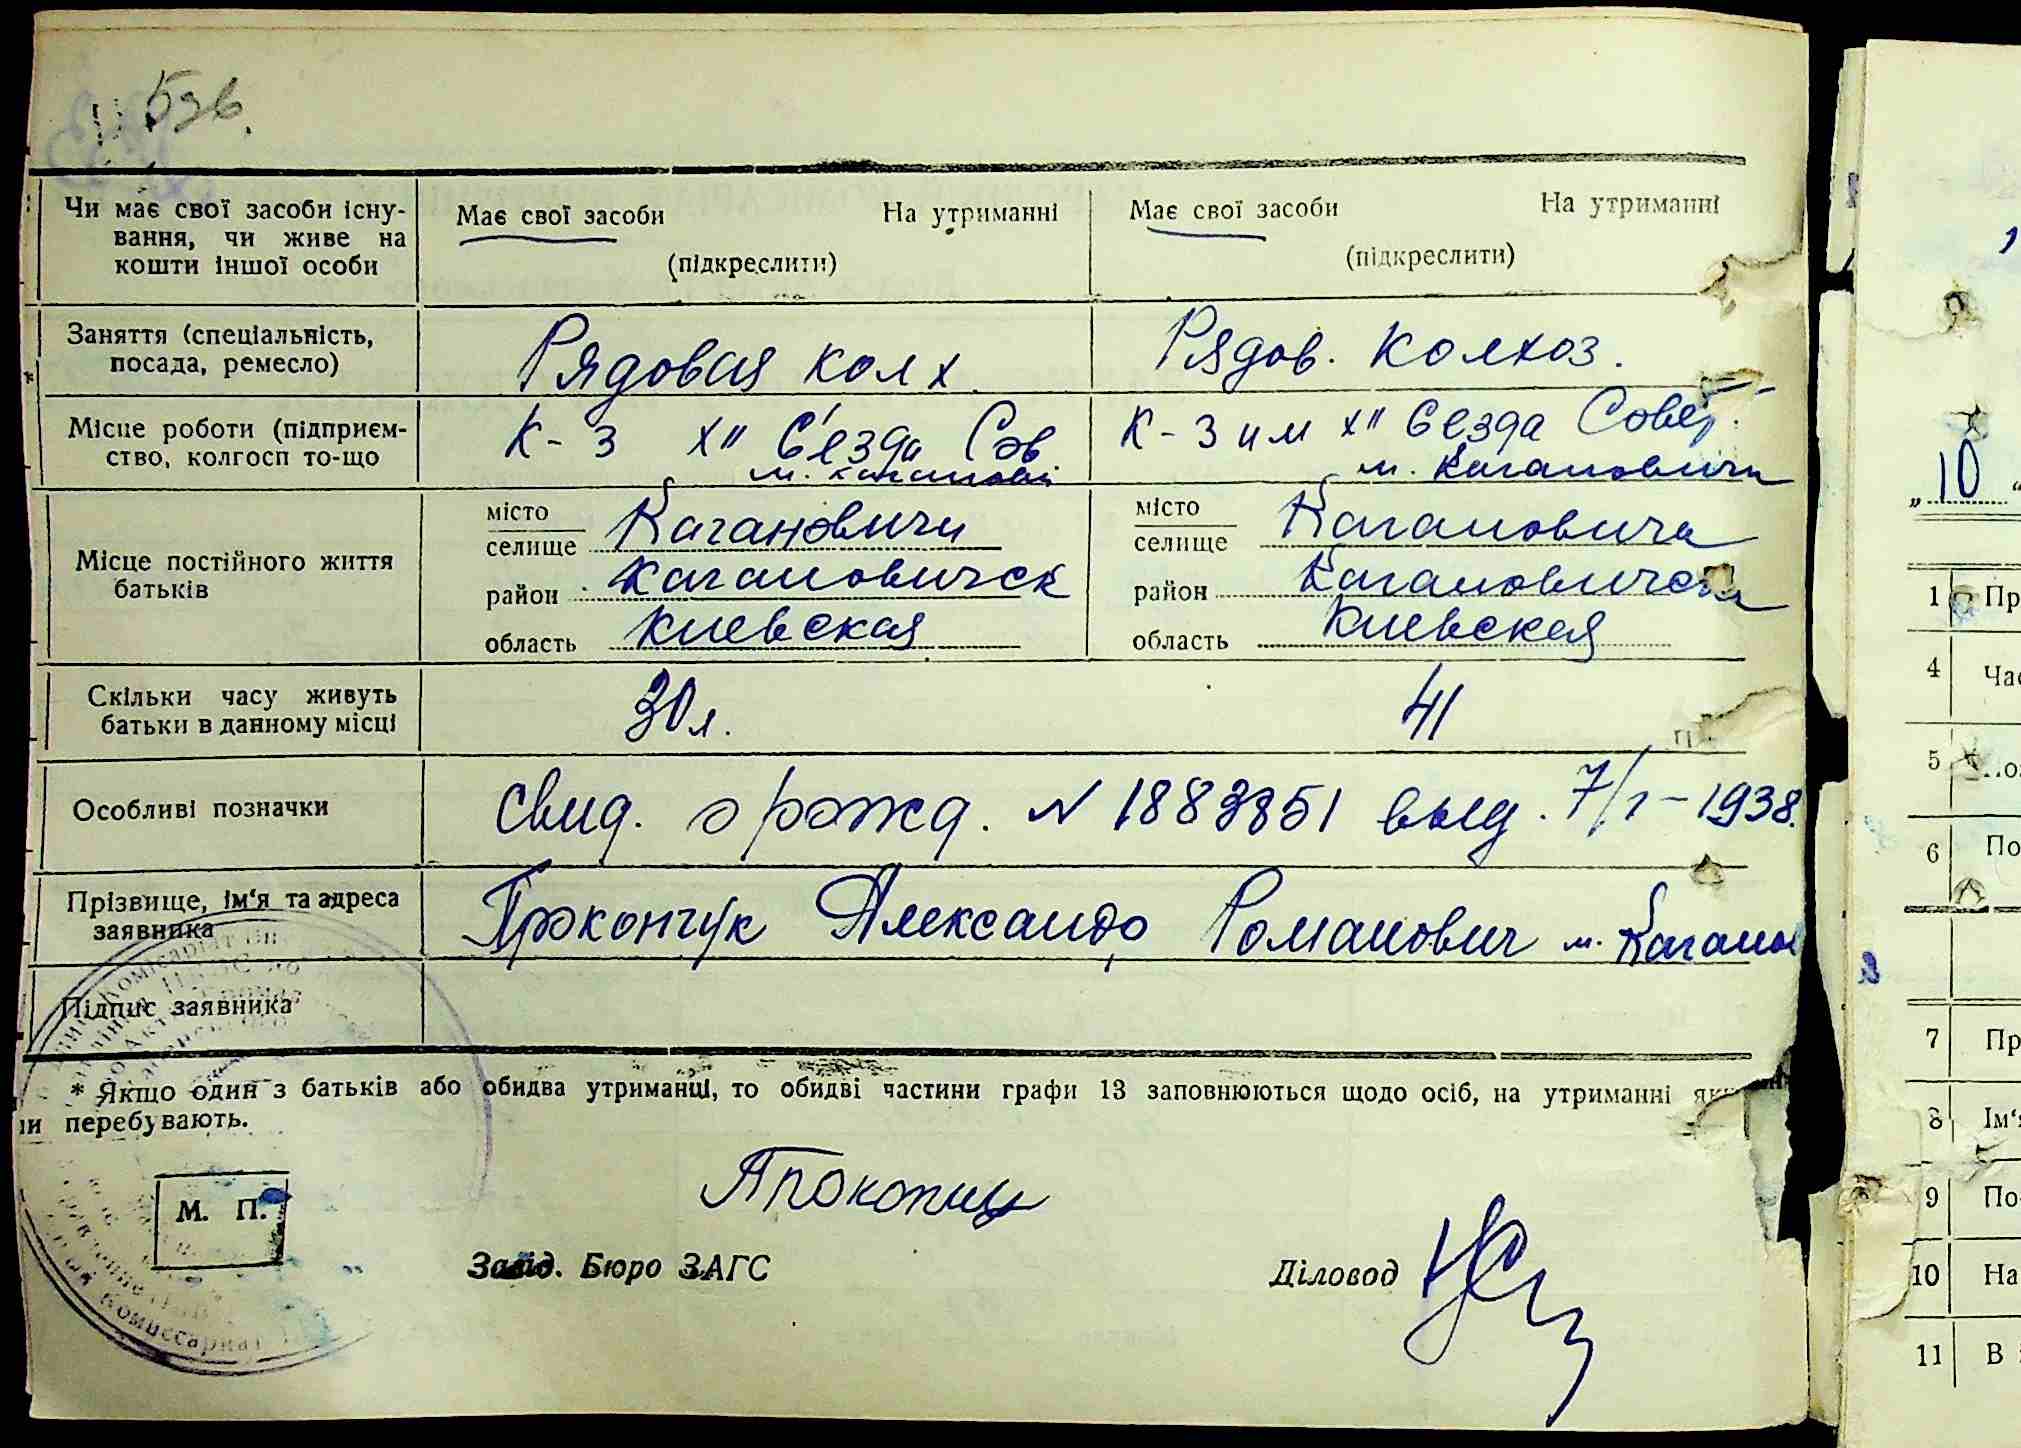 Чи має свої засоби існу-
вання, чи живе на
кошти іншої особи
Має свої засоби На утриманні
(підкреслити)
Має свої засоби На утриманні
(підкреслити)
Заняття (спеціальність,
посада, ремесло)
Рядовая колх.
Рядов. колхоз.
Місце роботи (підприєм-
ство, колгосп то-що
К-З XII С'езда Сов
м. Каганович
К-З им XII Сезда Совет.
м. Кагановичи
Місце постійного життя
батьків
місто
селище Кагановичи
район Кагановичск
область Киевская
місто
селище Кагановича
район
область Киевская
Скільки часу живуть
батьки в данному місці
30 л.
41
Особливі позначки
Свид. о рожд. N 1883851 выд. 7/I-1938.
Прізвище, ім'я та адреса
заявника
Прокончук Александр Романович м. Каганов
Підпис заявника
* Якщо один з батьків або обидва утриманці, то обидві частини графи 13 заповнюються щодо осіб, на утриманні як
ни перебувають.
М. П.
Завід. Бюро ЗАГС
Діловод
Комиссариат
„ 10 “
1 Пр
4 Час
5
6 По
7 Пр
8 Ім'я
9 По
10 На
11 В